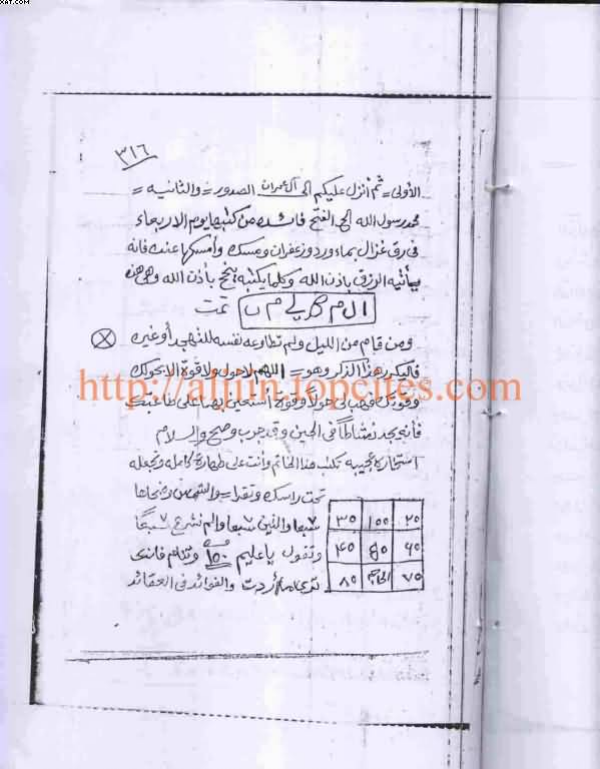 XAT.COM
٣١٦
الأولى = ثم أنزل عليكم الى آل عمران الصدور = والثانيه =
محمد رسول الله الى الفتح فائده من كتبها يوم الاربعاء
فى رق غزال بماء ورد وزعفران ومسك وأمسكها عنده فانه
يأتيه الرزق بإذن الله وكلما يكتبه ينجح بأذن الله وهى هذه
تمت
ومن قام من الليل ولم تطاوعه نفسه للتهجد أو غيره
فاليكرر هذا الذكر وهو = اللهم لا حول ولا قوة الا بحولك
وقوتك فهب لى حولاً وقوة أستعين بهما على طاعتك
http://aljiin.topcites.com
فانه يجد نشاطاً فى الحين وقد جرب وصح والسلام
استخاره عجيبه تكتب هذا الخاتم وأنت على طهارة كامله وتجعله
تحت راسك وتقراء والشمس وضحاها
سبعا والتين سبعا والم نشرح سبعاً
وتقول يا عليم ١٥٠ وتنام فانك
ترى ما أردت والفوائد فى العقائد
٣٥ ١٠٠ ٢٥
٤٥ ٥٥ ٦٥
٨٥ ٧٥